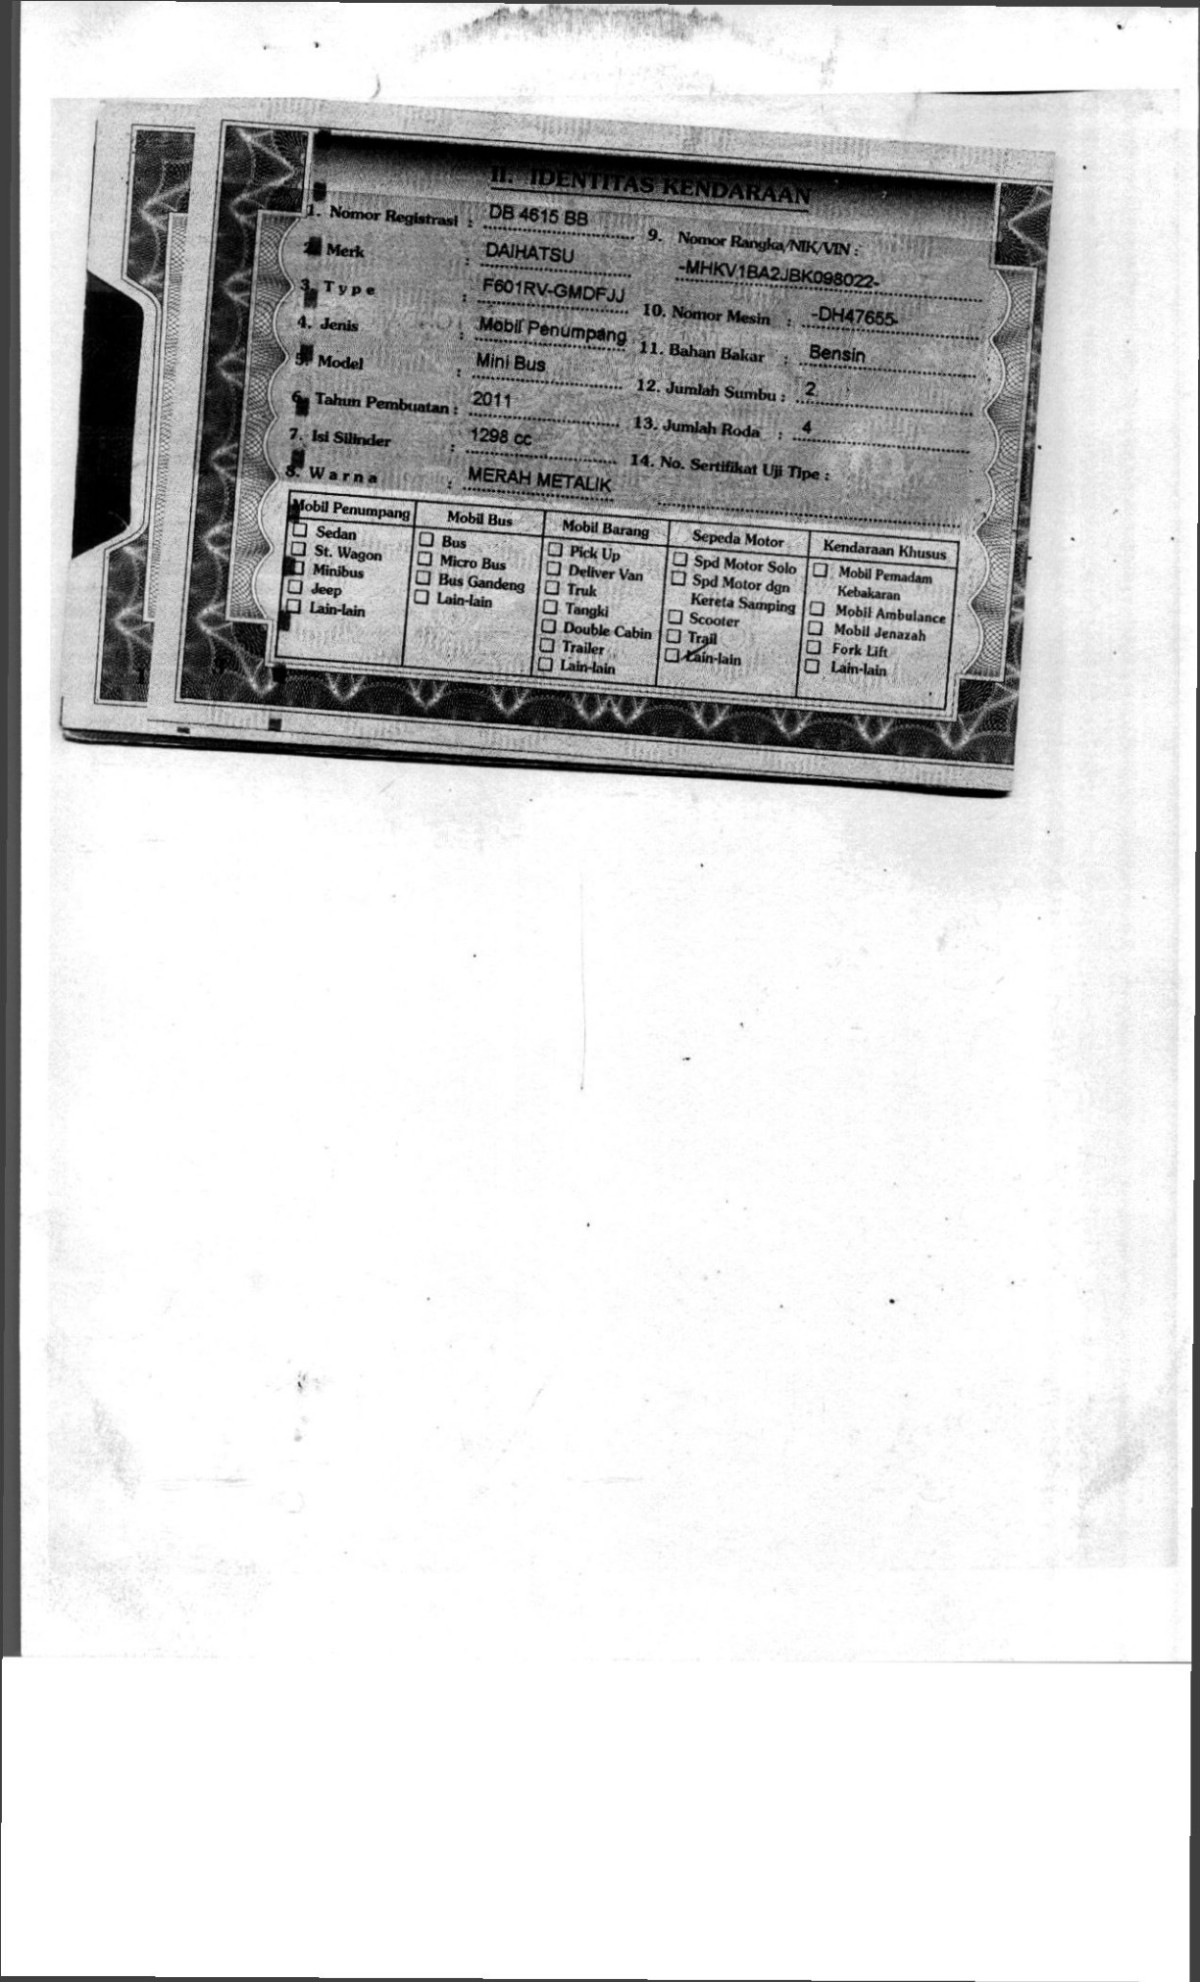 II. IDENTITAS KENDARAAN
1. Nomor Registrasi : DB 4615 BB
2. Merk : DAIHATSU
3. Type : F601RV-GMDFJJ
4. Jenis : Mobil Penumpang
5. Model : Mini Bus
6. Tahun Pembuatan : 2011
7. Isi Silinder : 1298 cc
8. Warna : MERAH METALIK
9. Nomor Rangka/NIK/VIN :
-MHKV1BA2JBK098022-
10. Nomor Mesin : -DH47655-
11. Bahan Bakar : Bensin
12. Jumlah Sumbu : 2
13. Jumlah Roda : 4
14. No. Sertifikat Uji Tipe :
Mobil Penumpang
Sedan
St. Wagon
Minibus
Jeep
Lain-lain
Mobil Bus
Bus
Micro Bus
Bus Gandeng
Lain-lain
Mobil Barang
Pick Up
Deliver Van
Truk
Tangki
Double Cabin
Trailer
Lain-lain
Sepeda Motor
Spd Motor Solo
Spd Motor dgn
Kereta Samping
Scooter
Trail
Lain-lain
Kendaraan Khusus
Mobil Pemadam
Kebakaran
Mobil Ambulance
Mobil Jenazah
Fork Lift
Lain-lain